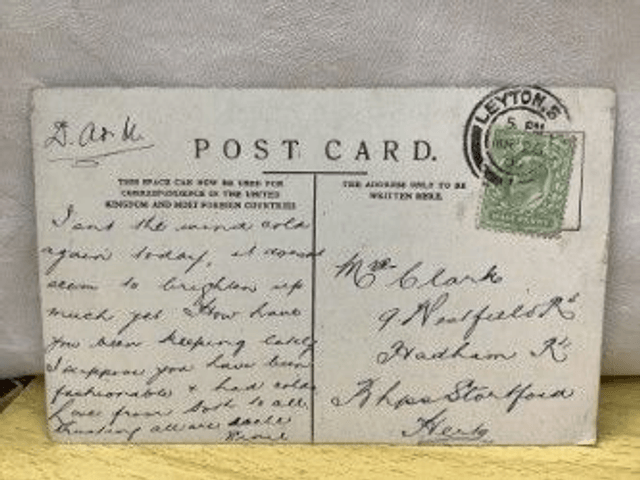 D. A & U.
POST CARD.
THIS SPACE CAN NOW BE USED FOR
CORRESPONDENCE IN THE UNITED
KINGDOM AND MOST FOREIGN COUNTRIES
THE ADDRESS ONLY TO BE
WRITTEN HERE.
LEYTON.
5 PM
Isnt the wind cold
again today, it doesnt
seem to brighten up
much yet How have
you been keeping lately
I suppose you have been
fashionable & had colds
Love from both to all
trusting all are
Mrs Clark
9 Westfield Rd
Hadham Rd
Bhps Stortford
Herts